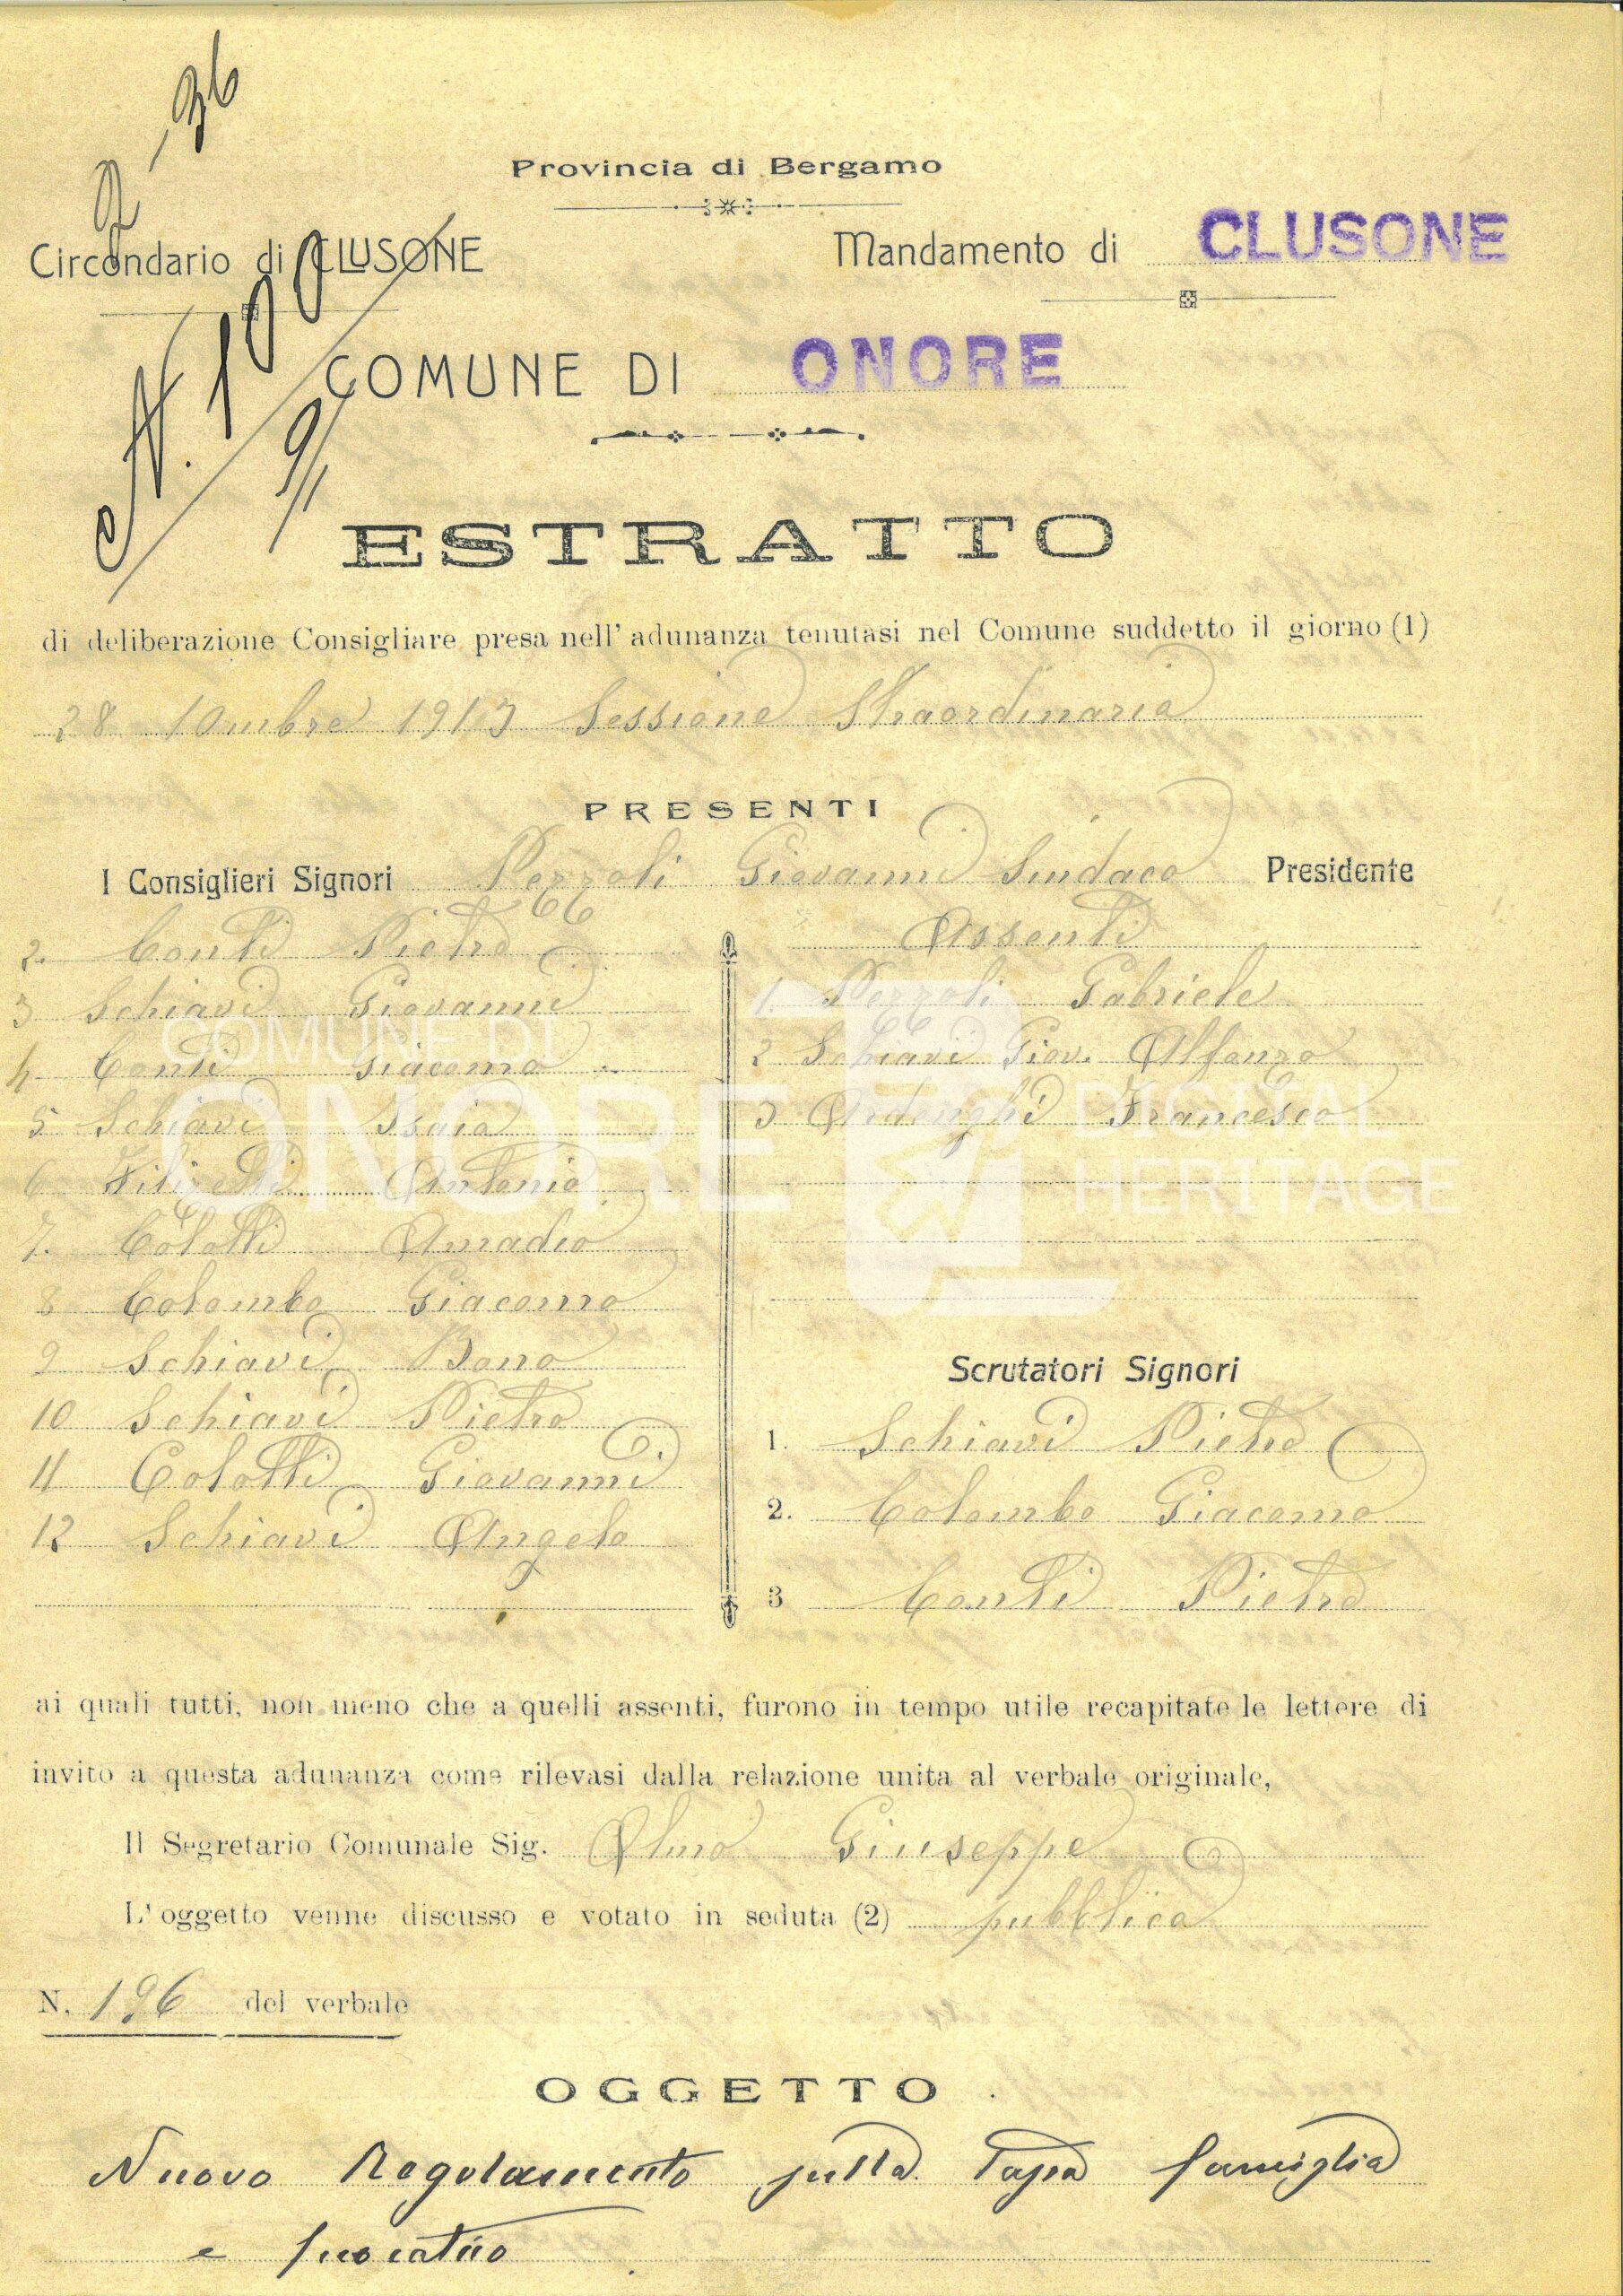 Provincia di Bergamo
Circondario di CLUSONE
Mandamento di CLUSONE
COMUNE DI ONORE
ESTRATTO
di deliberazione Consigliare presa nell' adunanza tenutasi nel Comune suddetto il giorno (1)
28 10mbre 1913 Sessione Straordinaria
PRESENTI
I Consiglieri Signori Pezzoli Giovanni Sindaco Presidente
2. Conti Pietro
3 Schiavi Giovanni
4. Conti Giacomo
5 Schiavi Isaia
6 Filizetti Antonio
7. Colotti Amadio
8 Colombo Giacomo
9 Schiavi Bono
10 Schiavi Pietro
11 Colotti Giovanni
12 Schiavi Angelo
Assenti
1. Pezzoli Gabriele
2 Schiavi Giov. Alfonzo
3 Ardenghi Francesco
Scrutatori Signori
1. Schiavi Pietro
2. Colombo Giacomo
3 Conti Pietro
COMUNE DI
ONORE
DIGITAL
HERITAGE
ai quali tutti, non meno che a quelli assenti, furono in tempo utile recapitate le lettere di
invito a questa adunanza come rilevasi dalla relazione unita al verbale originale,
Il Segretario Comunale Sig. Olmo Giuseppe
L'oggetto venne discusso e votato in seduta (2) pubblica
N. 196 del verbale
OGGETTO
Nuovo Regolamento sulla Tassa famiglia
e fuocatico